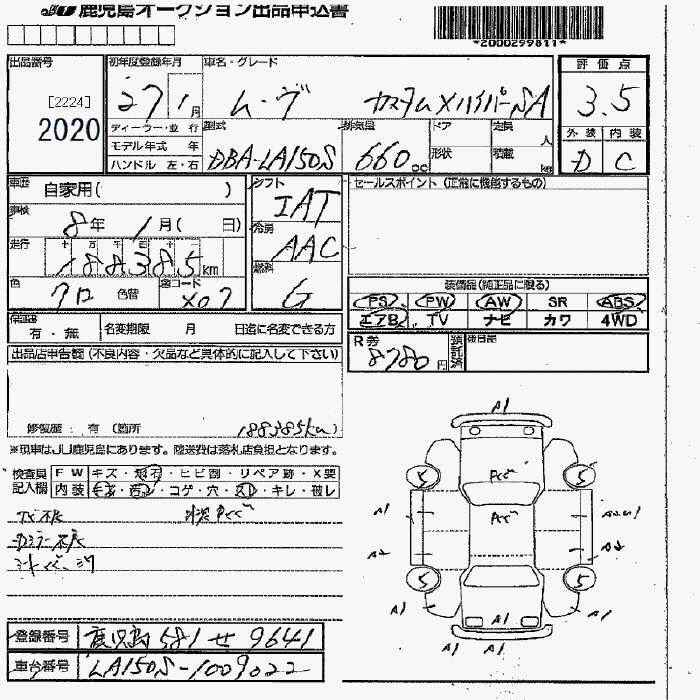 鹿児島オークション出品申込書
*2000299811*
出品番号 初年度登録年月 車名・グレード 評価点
[2224]
2020
27 1月 ム・ヴ カスタムXハイパーSA 3.5
ディーラー・並行 型式 排気量 ドア 定員 人 外装 内装
モデル年式 年 形状 積載 kg
ハンドル 左・右 DBA-LA150S 660cc D C
車歴 自家用( ) シフト IAT セールスポイント(正常に機能するもの)
車検 8年 1月( 日) 冷房 AAC
走行 十 万 千 百 十
188385km 燃料 G
色 クロ 色替 色コード X07
装備品(純正品に限る)
PS PW AW SR ABS
エアB TV ナビ カワ 4WD
保証書 有・無 名変期限 月 日迄に名変できる方
R券 8780円 預託済 後日部
出品店申告欄(不良内容・欠品など具体的に記入して下さい)
修復歴: 有 (箇所 188385km
※現車はJU鹿児島にあります。陸送費は落札店負担となります。
検査員 FW キズ・飛石・ヒビ割・リペア跡・X要
記入欄 内装 キズ・汚れ・コゲ・穴・スレ・キレ・破レ
A1
S S
A1 A2
A2
S S
A1 A1 A1
A1 A1
登録番号 鹿児島 581 せ 9641
車台番号 LA150S-1009022